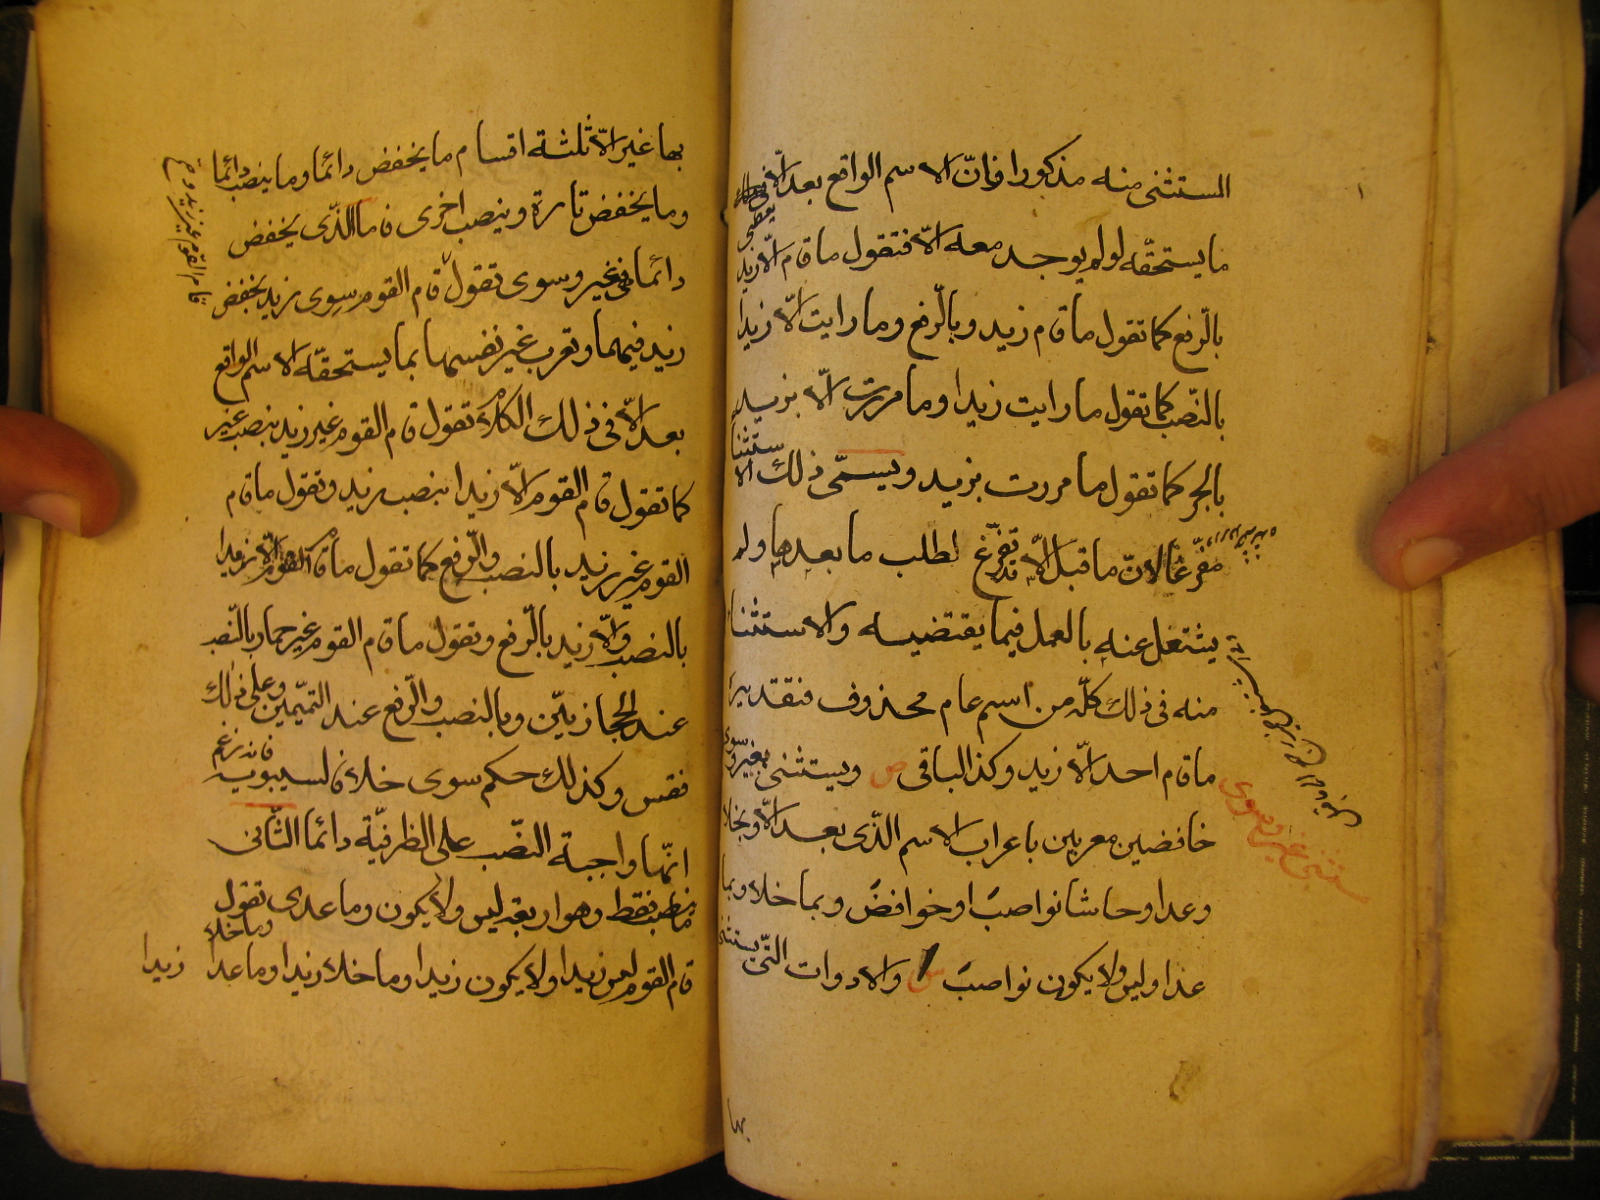 المستثنى منه مذكورا فانّ الاسم الواقع بعد الّا يعطى
ما يستحقّه لو لم يوجد معه الّا فتقول ما قام الّا زيد
بالّرفع كما تقول ما قام زيد وبالّرفع وما رايت الّا زيدا
بالنّصب كما تقول ما رايت زيدا وما مررت الّا بزيد
بالجر كما تقول ما مررت بزيد ويسمّى ذلك الاستثنا
مفرّغا لانّ ما قبل الّا قد تفرّغ لطلب ما بعدها ولم
يشتغل عنه بالعمل فيما يقتضيه والاستثنا
منه فى ذلك كلّه من اسم عام محذوف فتقدير
ما قام احد الّا زيد وكذا الباقى ص ويستثنى بغير وسوى
خافضين معربين باعراب الاسم الذّى بعد الّا وبخلا
وعدا وحاشا نواصبَ او خوافضَ وبما خلا وبما
عدا وليس ولا يكون نواصبَ ش والادوات التّى يستثنى
يستثنى بغير وسوى
بها
بها غير الّا ثلثة اقسام ما يخفض دائما وما ينصب دائما
وما يخفض تارة وينصب اخرى فاما الذّى يخفض
دائما فغير وسوى تقول قام القوم سوى زيد بخفض
زيد فيهما وتعرب غير نفسها بما يستحقّه الاسم الواقع
بعد الّا فى ذلك الكلام تقول قام القوم غير زيد بنصب غير
كما تقول قام القوم الّا زيدا بنصب زيد وتقول ما قام
القوم غير زيد بالنصب والّرفع كما تقول ما قام القوم الّا زيدا
بالنصب والّا زيد بالّرفع وتقول ما قام القوم غير حمار بالنّصب
عند الحجازييّن وبالنصب والّرفع عند التّميميّن وعلى ذلك
فقس وكذلك حكم سوى خلافا لسيبويه فانه زعم
انّها واجبة النصّب على الظرفيّة دائما الثّانى
ما ينصب فقط وهو اربعة ليس ولا يكون وما عدى وما خلا تقول
قام القوم ليس زيدا ولا يكون زيدا وما خلا زيدا وما عدا زيدا
قام القوم غير زيد